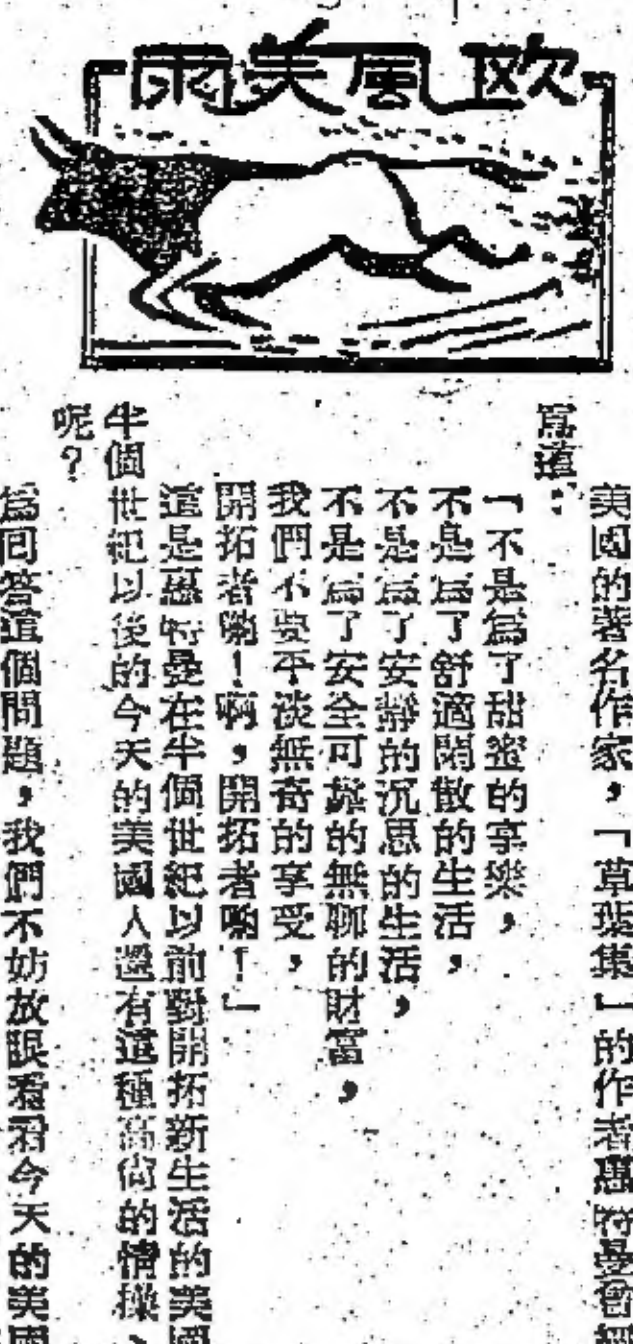 欧風美雨
美國的著名作家，「草葉集」的作者惠特曼曾經
寫道：
「不是爲了甜蜜的享樂，
不是爲了舒適閑散的生活，
不是爲了安靜的沉思的生活，
不是爲了安全可靠的無聊的財富，
我們不要平淡無奇的享受，
開拓者喲！啊，開拓者喲！」
這是惠特曼在半個世紀以前對開拓新生活的美國
半個世紀以後的今天的美國人還有這種高尙的情操、
呢？
爲回答這個問題，我們不妨放眼看看今天的美國